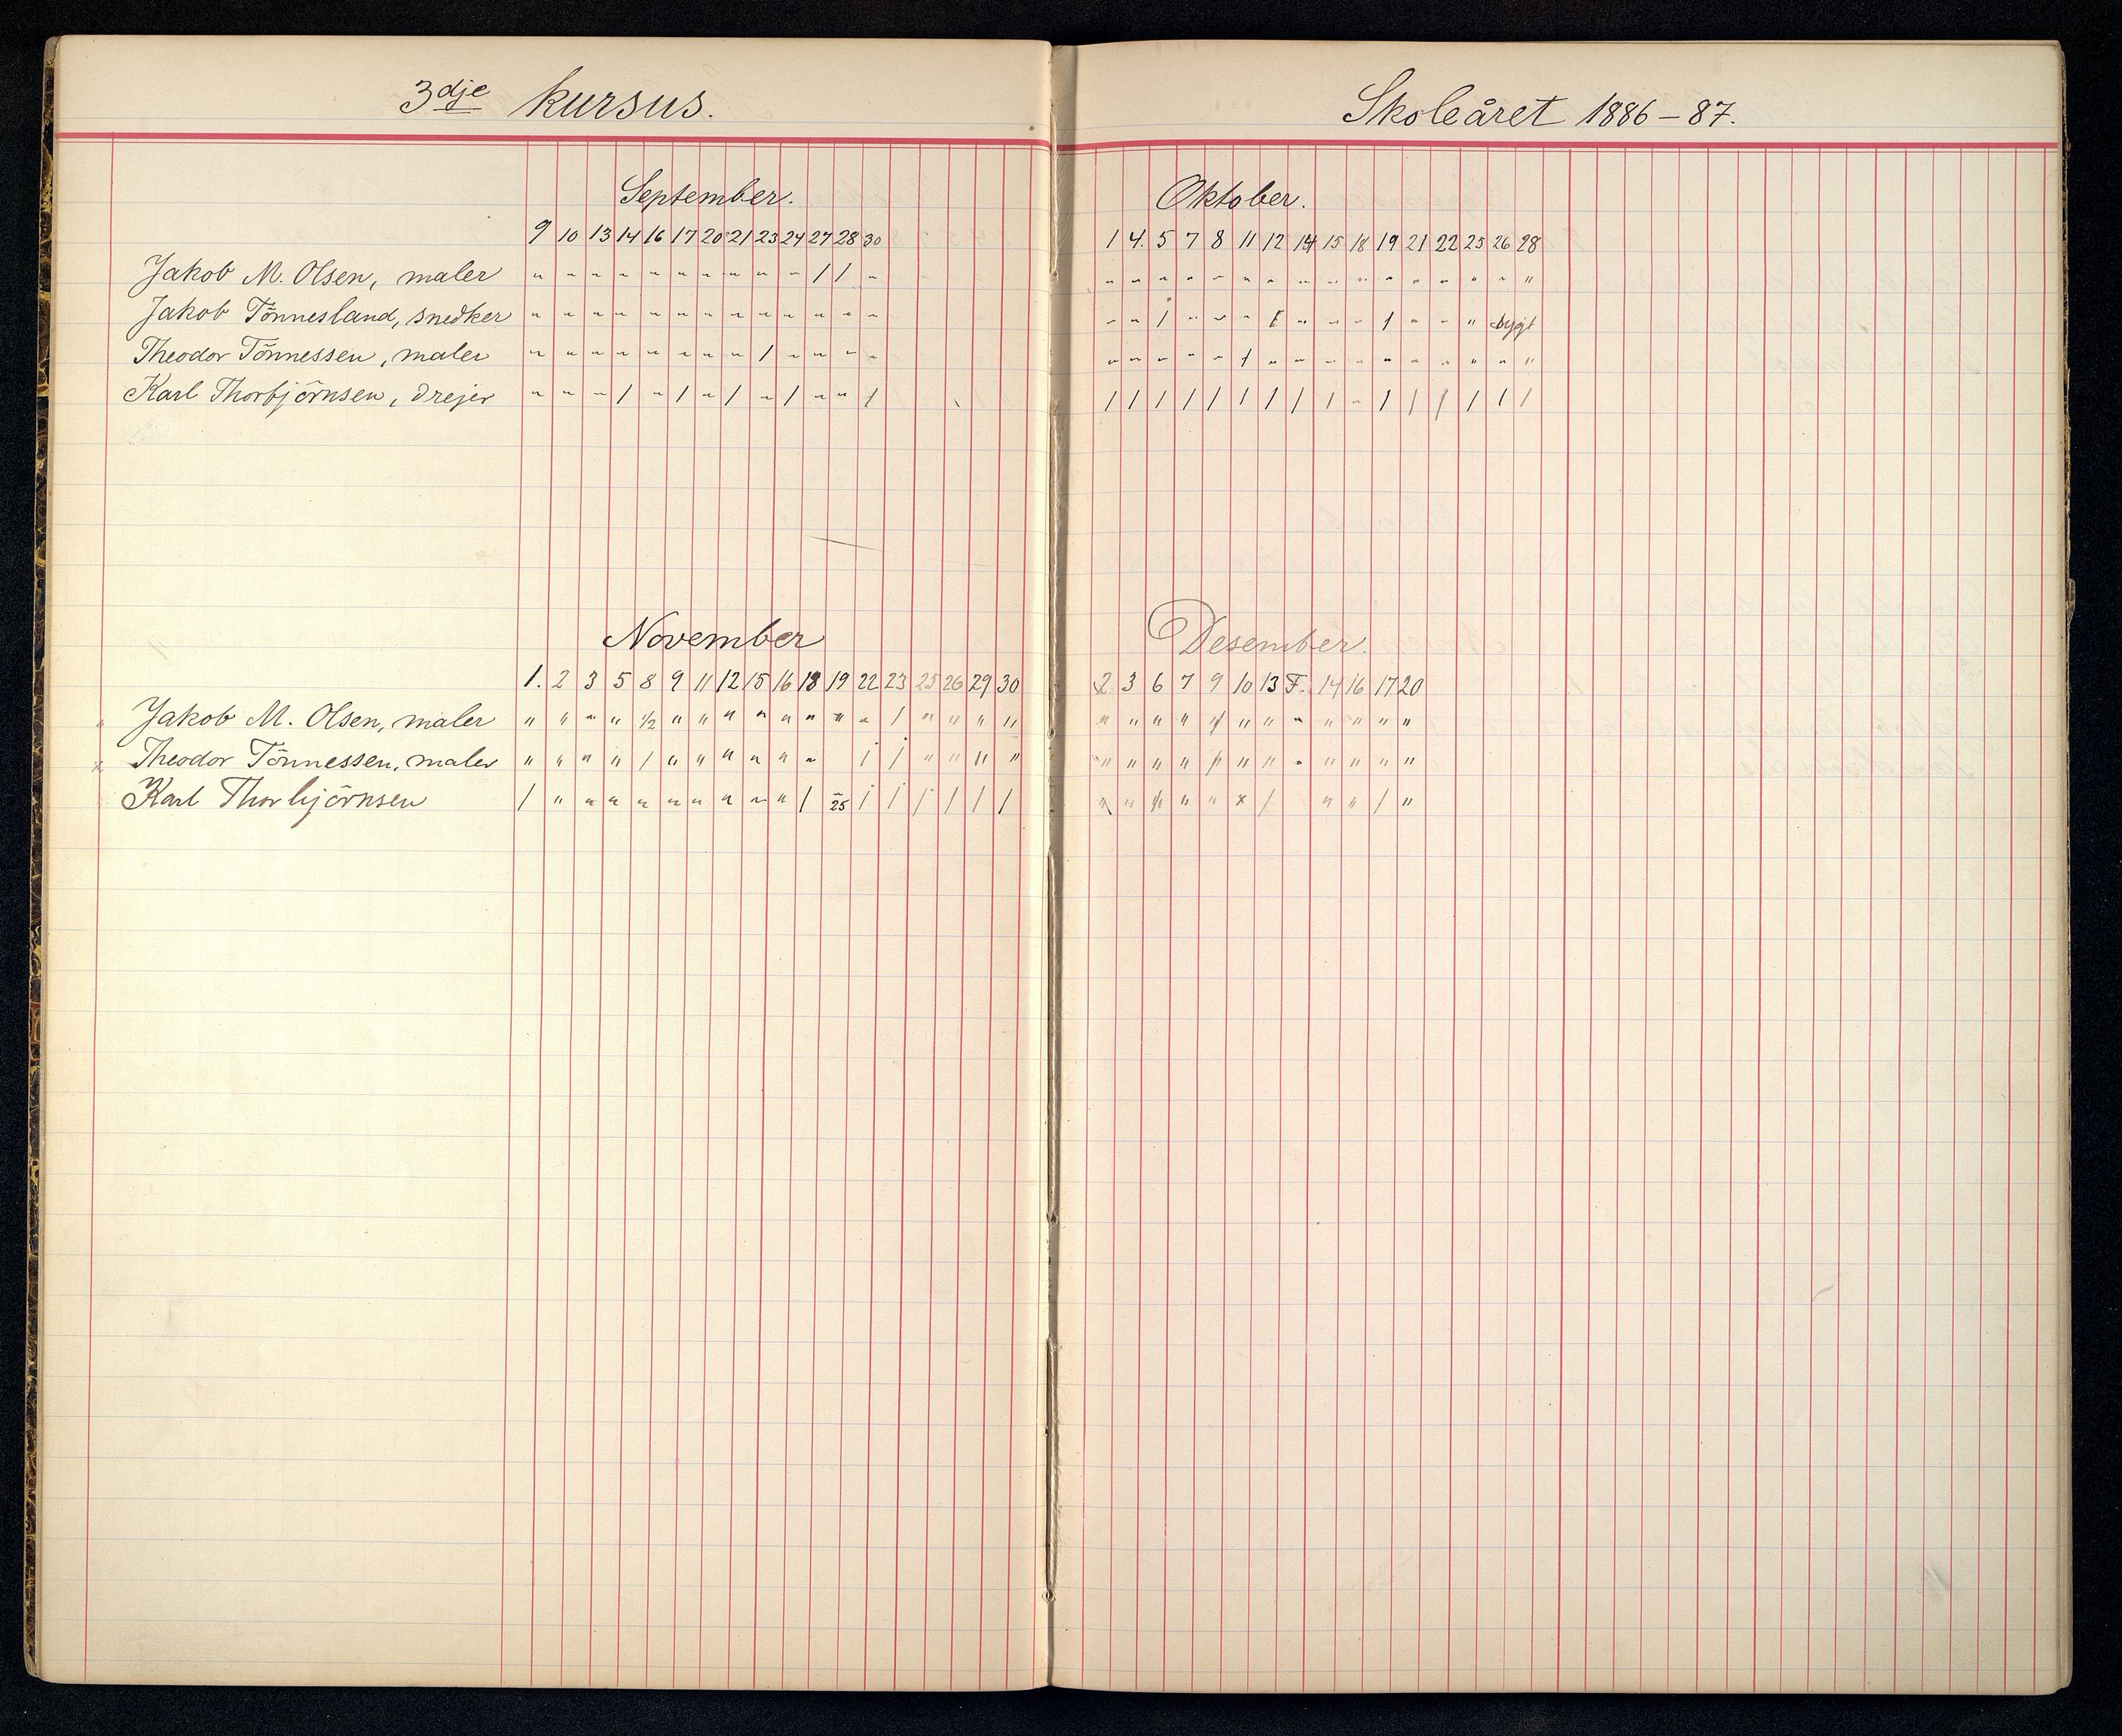 3dje kursus.
Skoleåret 1886-87.
September.
9 10 13 14 16 17 20 21 23 24 27 28 30
Jakob M. Olsen, maler " " " " " " " " " " / / "
Jakob Tönnesland, snedker " " " " " " " " " " " " "
Theodor Tönnessen, maler " " " " " " " " / " " " "
Karl Thorbjörnsen, drejer " " " / " / " / " / " " /
Oktober.
1 4. 5 7 8 11 12 14 15 18 19 21 22 25 26 28
" " " " " " " " " " " " " " " "
" " / " " " / " " " / " " " sygt
" " " " " / " " " " " " " " " "
/ / / / / / / / / " / / / / / /
November
1. 2 3 5 8 9 11 12 15 16 18 19 22 23 25 26 29 30
" Jakob M. Olsen, maler " " " " 1/2 " " " " " " " " / " " " "
Theodor Tönnessen, maler " " " " / " " " " " " / / " " " "
Karl Thorbjörnsen / " " " " " " " " " / 25 / / / / / /
Desember.
2. 3 6 7 9 10 13 F. 14 16 17 20
" " " " " " " " " " " "
" " " " " " " " " " " "
" " " " " x / " " / "